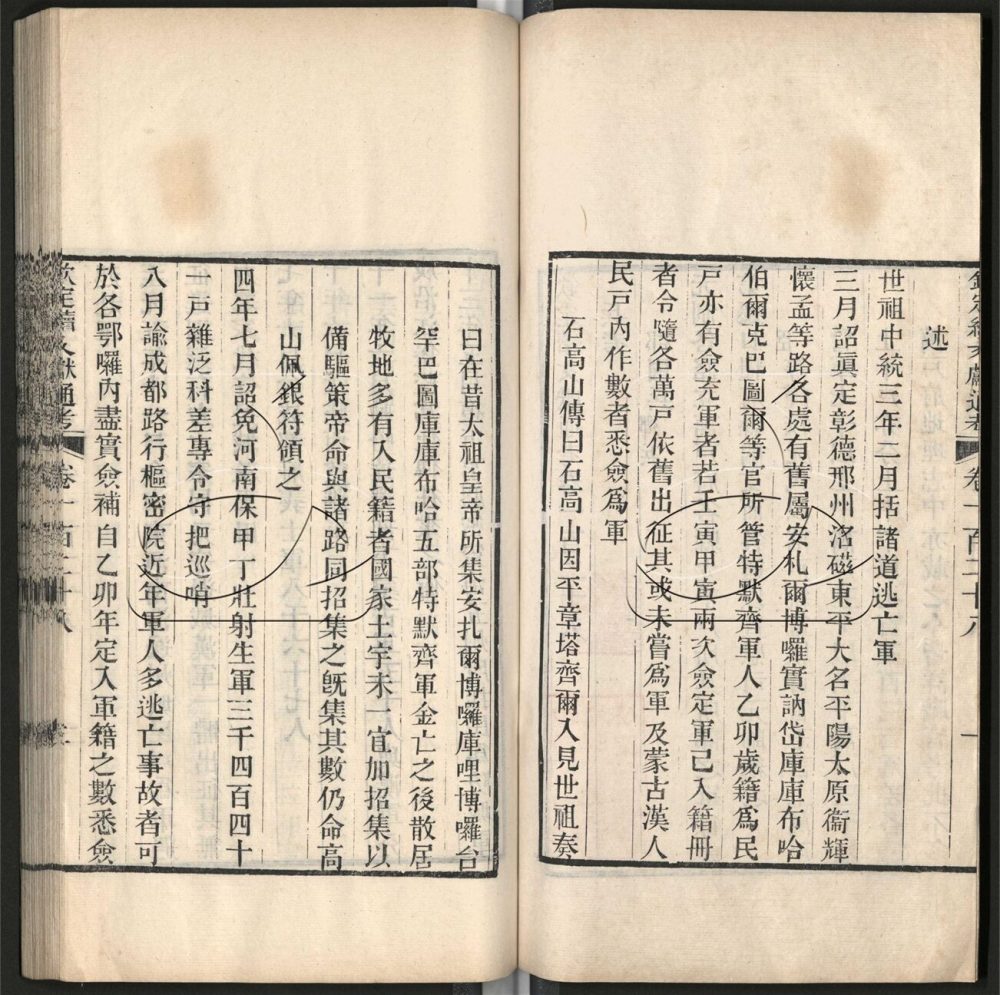 欽定續文獻通考 卷一百二十八 一
述
世祖中統三年二月括諸道逃亡軍
三月詔眞定彰德邢州洺磁東平大名平陽太原衞輝
懷孟等路各處有舊屬安札爾博囉實訥岱庫庫布哈
伯爾克巴圖爾等官所管特默齊軍人乙卯歲籍爲民
戸亦有僉充軍者若壬寅甲寅兩次僉定軍已入籍冊
者令隨各萬戸依舊出征其或未嘗爲軍及蒙古漢人
民戸內作數者悉僉爲軍
石高山傳曰石高山因平章塔齊爾入見世祖奏
曰在昔太祖皇帝所集安扎爾博囉庫哩博囉台
罕巴圖庫庫布哈五部特默齊軍金亡之後散居
牧地多有入民籍者國家土宇未一宜加招集以
備驅策帝命與諸路同招集之旣集其數仍命高
山佩銀符領之
四年七月詔免河南保甲丁壯射生軍三千四百四十
一戸雜泛科差專令守把巡哨
八月諭成都路行樞密院近年軍人多逃亡事故者可
於各鄂囉內盡實僉補自乙卯年定入軍籍之數悉僉
欽定續文獻通考 卷一百二十八